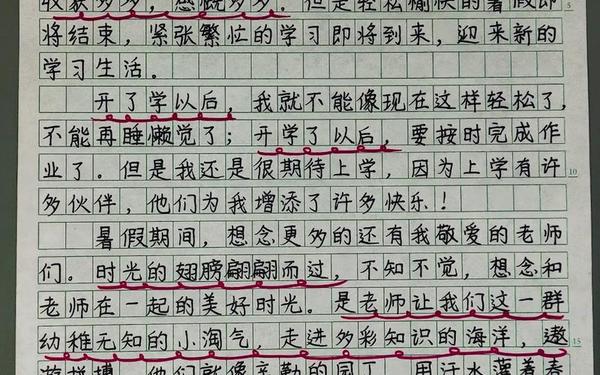 收获多多，感慨多多。但是轻松愉快的暑假即
将结束，紧张繁忙的学习即将到来，迎来新的
学习生活。
开了学以后，我就不能像现在这样轻松了，
不能再睡懒觉了；开学了以后，要按时完成作
业了。但是我还是很期待上学，因为上学有许
多伙伴，他们为我增添了许多快乐！
暑假期间，想念更多的还有我敬爱的老师
们。时光的翅膀翩翩而过，不知不觉，想念和
老师在一起的美好时光。是老师让我们这一群
幼稚无知的小淘气，走进多彩知识的海洋，遨
游拼搏，他们就像辛勤的园丁，用汗水灌着春
5
10
15